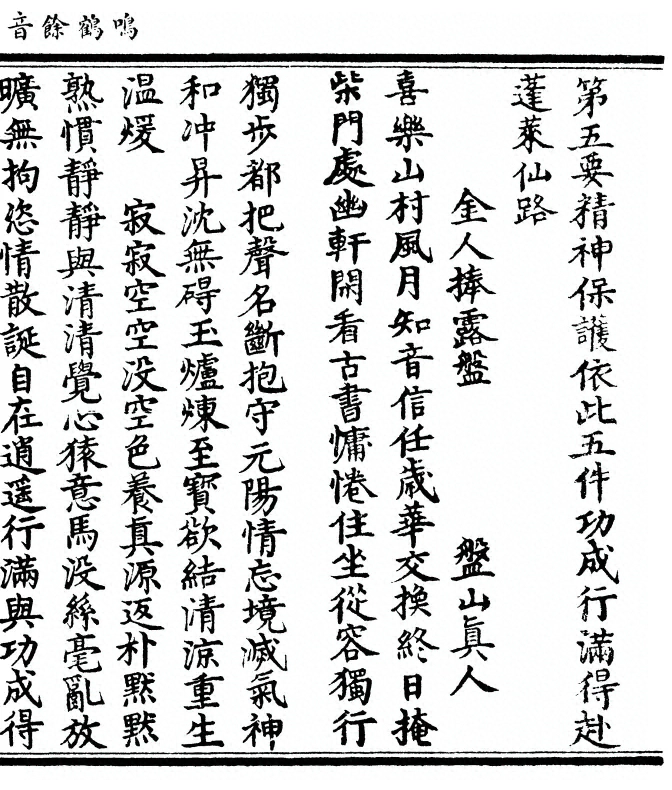 鳴鶴餘音
第五要精神保護依此五件功成行滿得赴
蓬萊仙路
金人捧露盤　盤山眞人
喜樂山村風月知音信任歲華交換終日掩
柴門處幽軒閑看古書慵惓住坐從容獨行
獨步都把聲名斷抱守元陽情忘境滅氣神
和冲昇沈無碍玉爐煉至寶欲結清涼重生
温煖　寂寂空空没空色養眞源返朴默默
熟慣靜靜與清清覺心猿意馬没絲毫亂放
曠無拘恣情散誕自在逍遥行滿與功成得